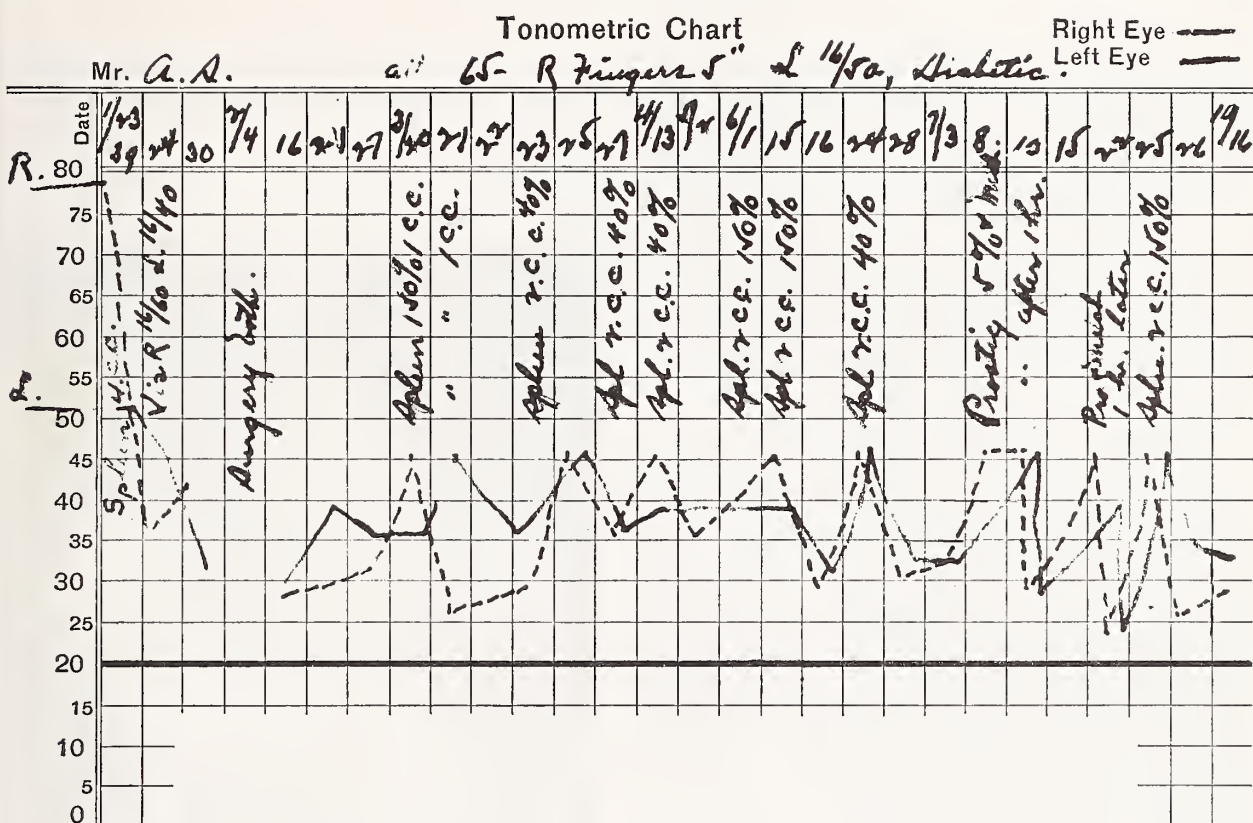 Tonometric Chart
Right Eye
Left Eye
Mr. A. S. 65- R Fingers 5" L 16/50, Diabetic.
Date 1/23 39 24 30 2/4 16 27 3/20 21 22 23 25 27 4/13 6/1 15 16 24 28 7/3 8 15 22 25 26 19/16
R. 80
75
70
65
60
55
50
45
40
35
30
25
20
15
10
5
0
Vis R 16/60 L. 16/40
Surgery both.
Spleen 150% 1 C.C.
" " 1 C.C.
Spleen 2 C.C. 40%
Spl. 2 C.C. 40%
Spl. 2 C.C. 40%
Spl. 2 cc. 150%
Spl. 2 cc. 150%
Spl. 2 C.C. 40%
Prostig 5%
" after 1 hr.
1 hr. later
2 c.c. 150%